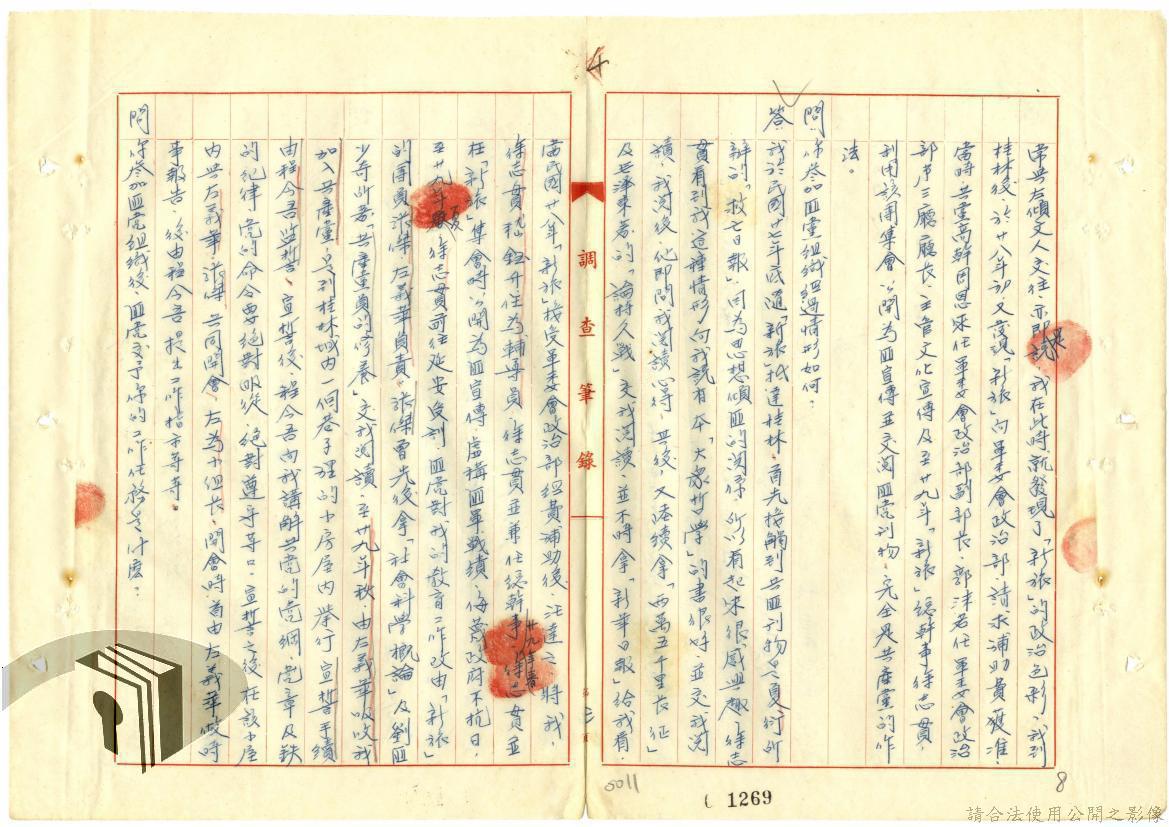 4
常與左傾文人交往、亦即是說、我在此時就發現了「新旅」的政治色彩、我到
桂林後、於廿八年初又發現「新旅」向軍委會政治部請求補助費獲准、
當時共黨高幹周恩來任軍委會政治部副部長、郭沫若任軍委會政治
部第三廳廳長、主管文化宣傳及至廿九年「新旅」總幹事徐志貫、
利用該團集會、公開為匪宣傳並交閱匪黨刊物、完全是共產黨的作
法。
問 你參加匪黨組織經過情形如何?
答 我於民國廿七年底隨「新旅」抵達桂林、首先接觸到共匪刊物是夏衍所
辦的「救亡日報」、因為思想傾匪的關係、所以看起來很感興趣、徐志
貫看到我這種情形、向我說有本「大眾哲學」的書很好、並交我閱
讀、我閱後、他即問我閱讀心得、其後、又陸續拿「兩萬五千里長征」
及毛澤東著的「論持久戰」交我閱讀、並不時拿「新華日報」給我看、
調查筆錄
當民國廿八年「新旅」接受軍委會政治部經費補助後、汪達之將我、
徐志貫、 升任為輔導員、徐志貫並兼任總幹事、廿九年春徐志貫並
在「新旅」集會時公開為匪宣傳、虛構匪軍戰績、侮蔑政府不抗日、
至廿九年夏徐志貫前往延安受訓、匪黨對我的教育工作改由「新旅」
的團員張傑、左義華負責、張傑曾先後拿「社會科學概論」及劉匪
少奇所著「共產黨員的修養」交我閱讀、至廿九年秋、由左義華吸收我
加入共產黨、是到桂林城內一個巷子裡的小房屋內舉行宣誓手續
由程今吾監誓、宣誓後、程今吾向我講解共黨的黨綱黨章及鉄
的紀律、黨的命令要絕對服從、絕對遵守等口、宣誓之後在該小屋
內與左義華、張傑共同開會、左為小組長、開會時首由左義華 時
事報告、後由程今吾提出工作指示等等。
問 你參加匪黨組織後、匪黨交予你的工作任務是什麼?
8
5011
1269
請合法使用公開之影像